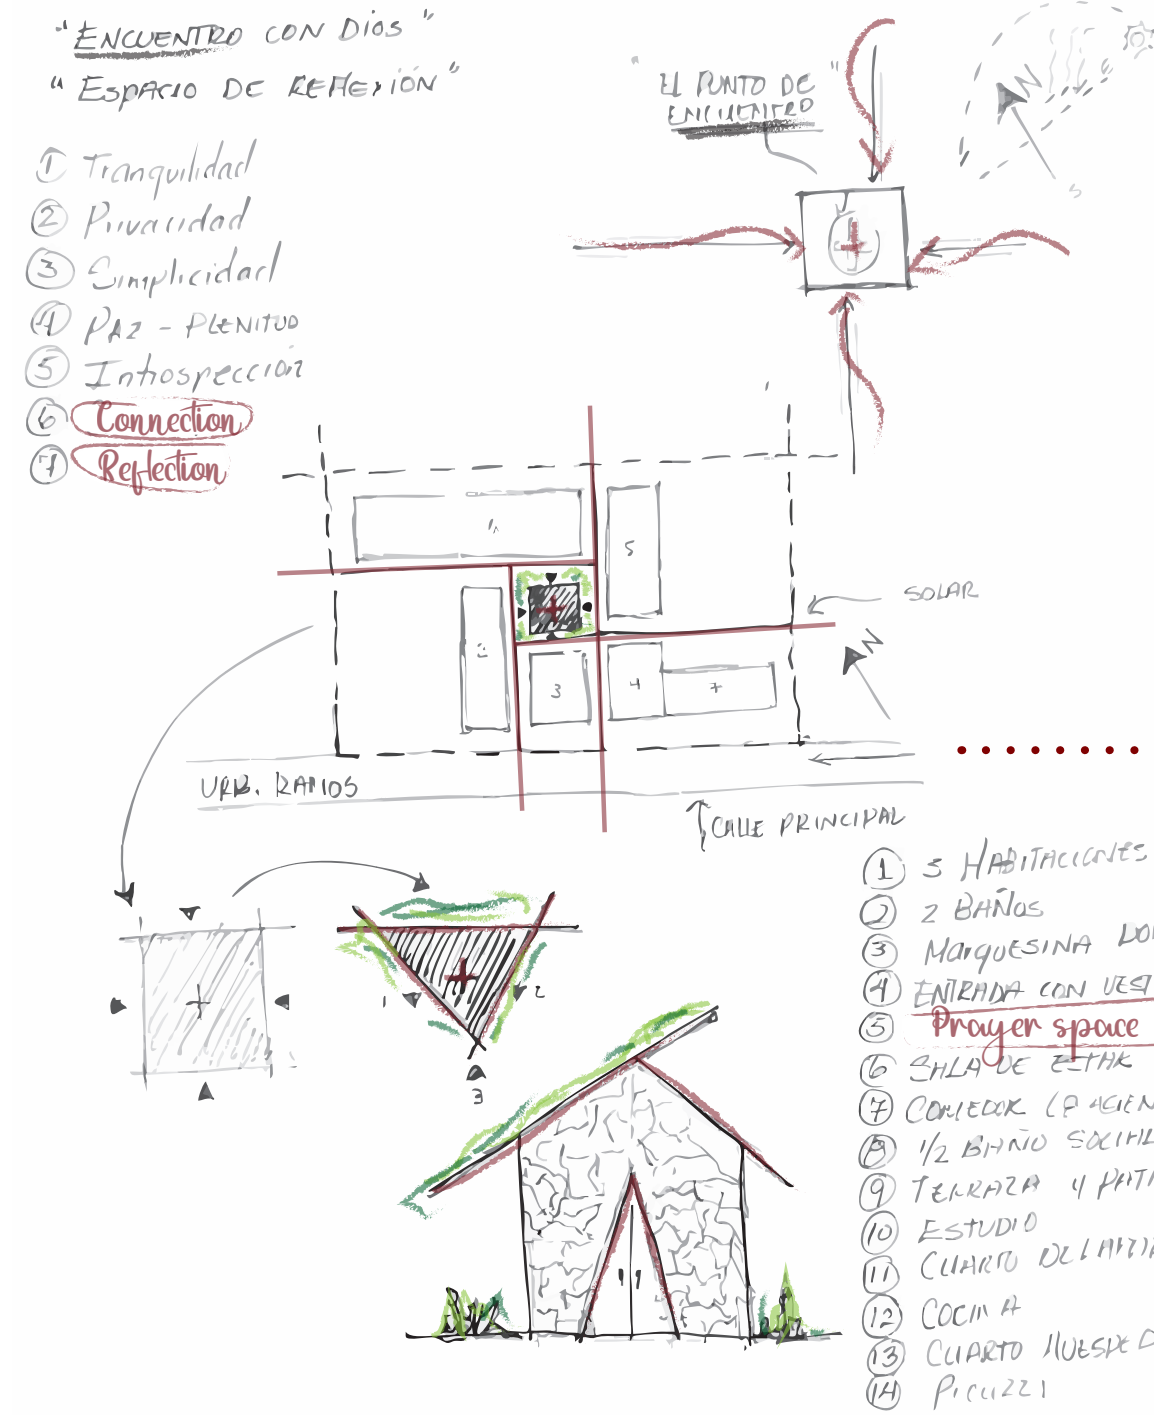 "ENCUENTRO CON DIOS"
"ESPACIO DE REFLEXIÓN"
1 Tranquilidad
2 Privacidad
3 Simplicidad
4 PAZ - PLENITUD
5 Introspección
6 Connection
7 Reflection
"EL PUNTO DE"
ENCUENTRO
N
S
5
2
3
4
7
SOLAR
N
URB. RAMOS
CALLE PRINCIPAL
1
2
3
1 3 HABITACIONES
2 2 BAÑOS
3 MARQUESINA
4 ENTRADA CON
5 Prayer space
6 SALA DE ESTAR
7 COMEDOR
8 1/2 BAÑO SOCIAL
9 TERRAZA Y
10 ESTUDIO
11 CUARTO DE
12 COCINA
13 CUARTO
14 PICUZZI